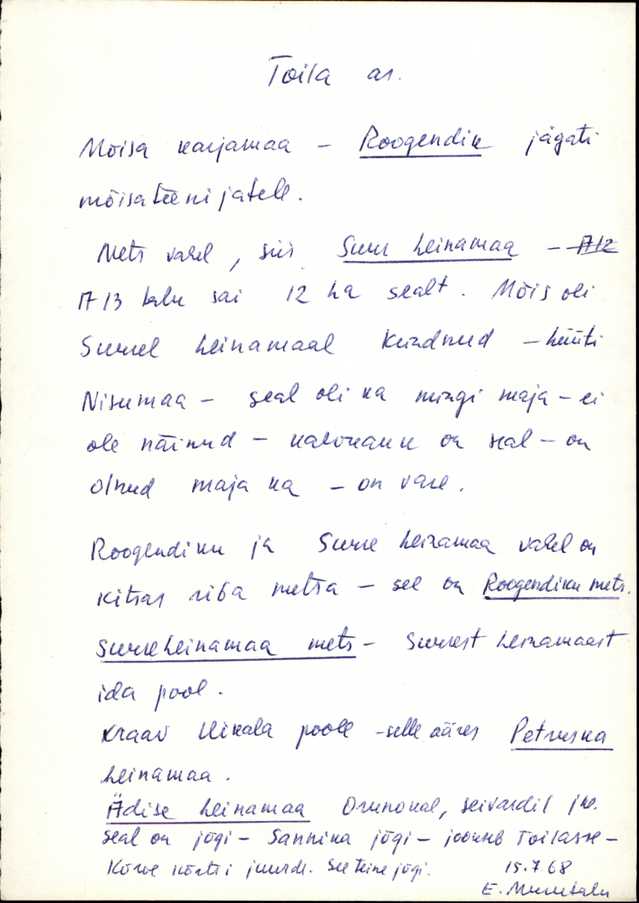 Toila as.
Mõisa karjamaa – Roogendik jägati
mõisateenijatele.
Mets vahel, siis Suur heinamaa – A12
A 13 talu sai 12 ha sealt. Mõis oli
Suurel heinamaal kündnud – hüüti
Nisumaa – seal oli ka mingi maja – ei
ole näinud – kaevuauk on seal – on
olnud maja ka – on vare.
Roogendiku ja Suure heinamaa vahel on
kitsas riba metsa – see on Roogendiku mets.
Suureheinamaa mets – Suurest heinamaast
ida pool.
Kraav Uikala poole – selle ääres Petruska
heinamaa.
Ädise heinamaa Orunokal, jne.
seal on jõgi – Sannika jõgi – jookseb Toilasse –
Kõrve kõrtsi juurde. See teine jõgi.
15.7.68
E. Muusikalu